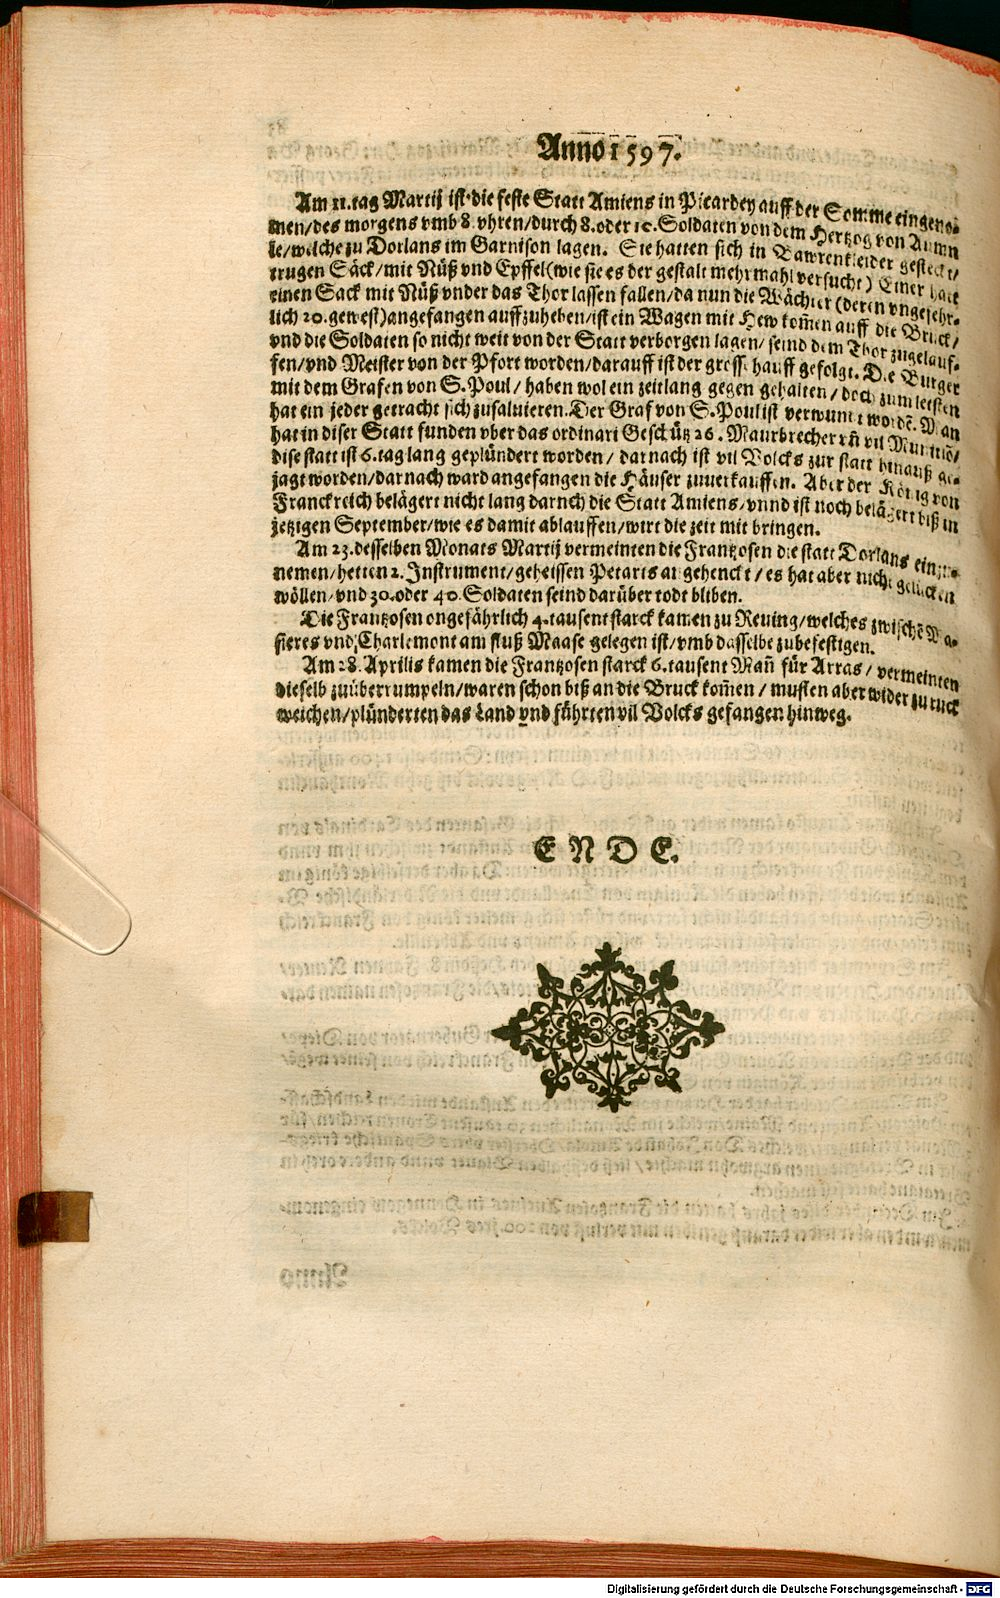 Anno 1597.
Am 11. tag Martij ist die feste Statt Amiens in Picardey auff der Somme eingenō-
men/des morgens vmb 8. vhren/durch 8. oder 10. Soldaten von dem Hertzog von Aumn
le/welche zu Dorlans im Garnison lagen. Sie hatten sich in Bawrenkleider gesteckt/
trugen Säck/mit Nüß vnd Epffel (wie sie es der gestalt mehrmahl versucht) Einer hatt
einen Sack mit Nüß vnder das Thor lassen fallen/da nun die Wächter (deren vngefehr-
lich 20. gewest) angefangen auffzuheben/ist ein Wagen mit Hew kom̄en auff die Bruck/
vnd die Soldaten so nicht weit von der Statt verborgen lagen/seind dem Thor zugelauf-
fen/vnd Meister von der Pfort worden/darauff ist der grosse hauff gefolgt. Die Burger
mit dem Grafen von S. Poul/haben wol ein zeitlang gegen gehalten/doch zum letsten
hat ein jeder getracht sich zusaluieren. Der Graf von S. Poul ist verwunt wordē. Man
hat in diser Statt funden vber das ordinari Geschütz 26. Maurbrecher vñ vil Munitiō/
dise statt ist 6. tag lang geplündert worden/darnach ist vil Volcks zur statt hinauß ge-
jagt worden/darnach ward angefangen die Häuser zuuerkauffen. Aber der König von
Franckreich belägert nicht lang darnch die Statt Amiens/vnnd ist noch belägert biß in
jetzigen September/wie es damit ablauffen/wirt die zeit mit bringen.
Am 23. desselben Monats Martij vermeinten die Frantzosen die statt Dorlans einzu-
nemen/hetten 2. Instrument/geheissen Petarts angehenckt/es hat aber nicht gelucken
wöllen/vnd 30. oder 40. Soldaten seind darüber todt bliben.
Die Frantzosen ongefährlich 4. tausent starck kamen zu Reuing/welches zwischē Ma-
sieres vnd Charlemont am fluß Maase gelegen ist/vmb dasselbe zubefestigen.
Am 28. Aprilis kamen die Frantzosen starck 6. tausent Mañ für Arras/vermeinten
dieselb zuüberrumpeln/waren schon biß an die Bruck kom̄en/musten aber wider zu ruck
weichen/plünderten das Land vnd führten vil Volcks gefangen hinweg.
ENDE.
Digitalisierung gefördert durch die Deutsche Forschungsgemeinschaft - DFG